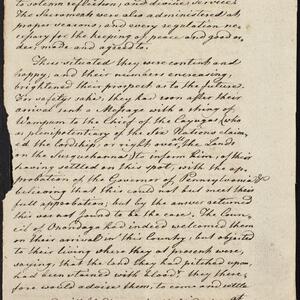 to solemn reflection, and divine Service.
The Sacraments were also administered at
proper seasons; and every regulation ne-
cessary for the keeping of peace and good or-
der, made and agreed to.
Thus situated they were content and
happy, and their numbers encreasing,
brightened their prospect as to the future.
For safety sake, they had soon after their
arrival sent a Message with a string of
Wampum to the Chief of the Cayugas (who
as plenipotentiary of the Six Nations claim-
ed the lordship, or right over, the Lands
on the Susquehannah) to inform him, of their
being settled on this spot, with the ap-
probation of the Governor of Pennsylvania &
believing that this could not but meet their
full approbation; but by the answer returned
this was not found to be the case. The Coun-
cil of Onondago had indeed welcomed them
on their arrival in this Country; but objected
to their living where they at present were
saying, that the land they had pitched upon,
had been stained with blood; they there-
fore would advise them, to come and settle
at